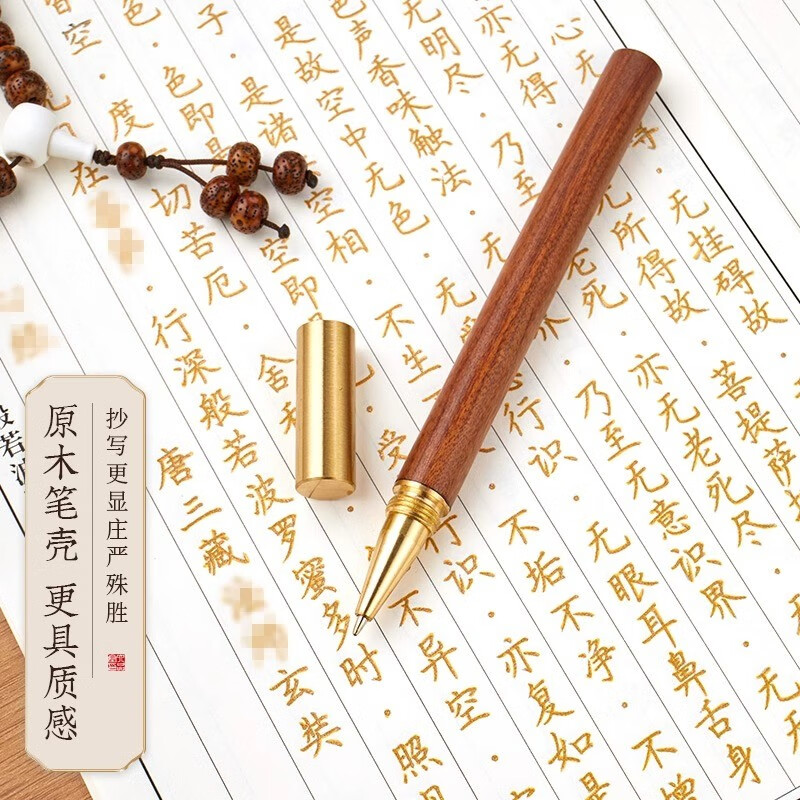 原木笔壳 更具质感
抄写更显庄严殊胜
心无
无挂碍故
亦无得
无所得故 菩提萨
无明尽 乃至
老死 亦无老死尽 无无
色声香味触法 无
乃至无意识界
是故空中无色 无
行识 无眼耳鼻舌身
子 是诸
空相 不生
不垢不净 不增
色即是
空即
受
行识 亦复如是
空 度
切苦厄 舍
不异空
在
行深般若波罗蜜多时 照
唐三藏
玄奘
般若波